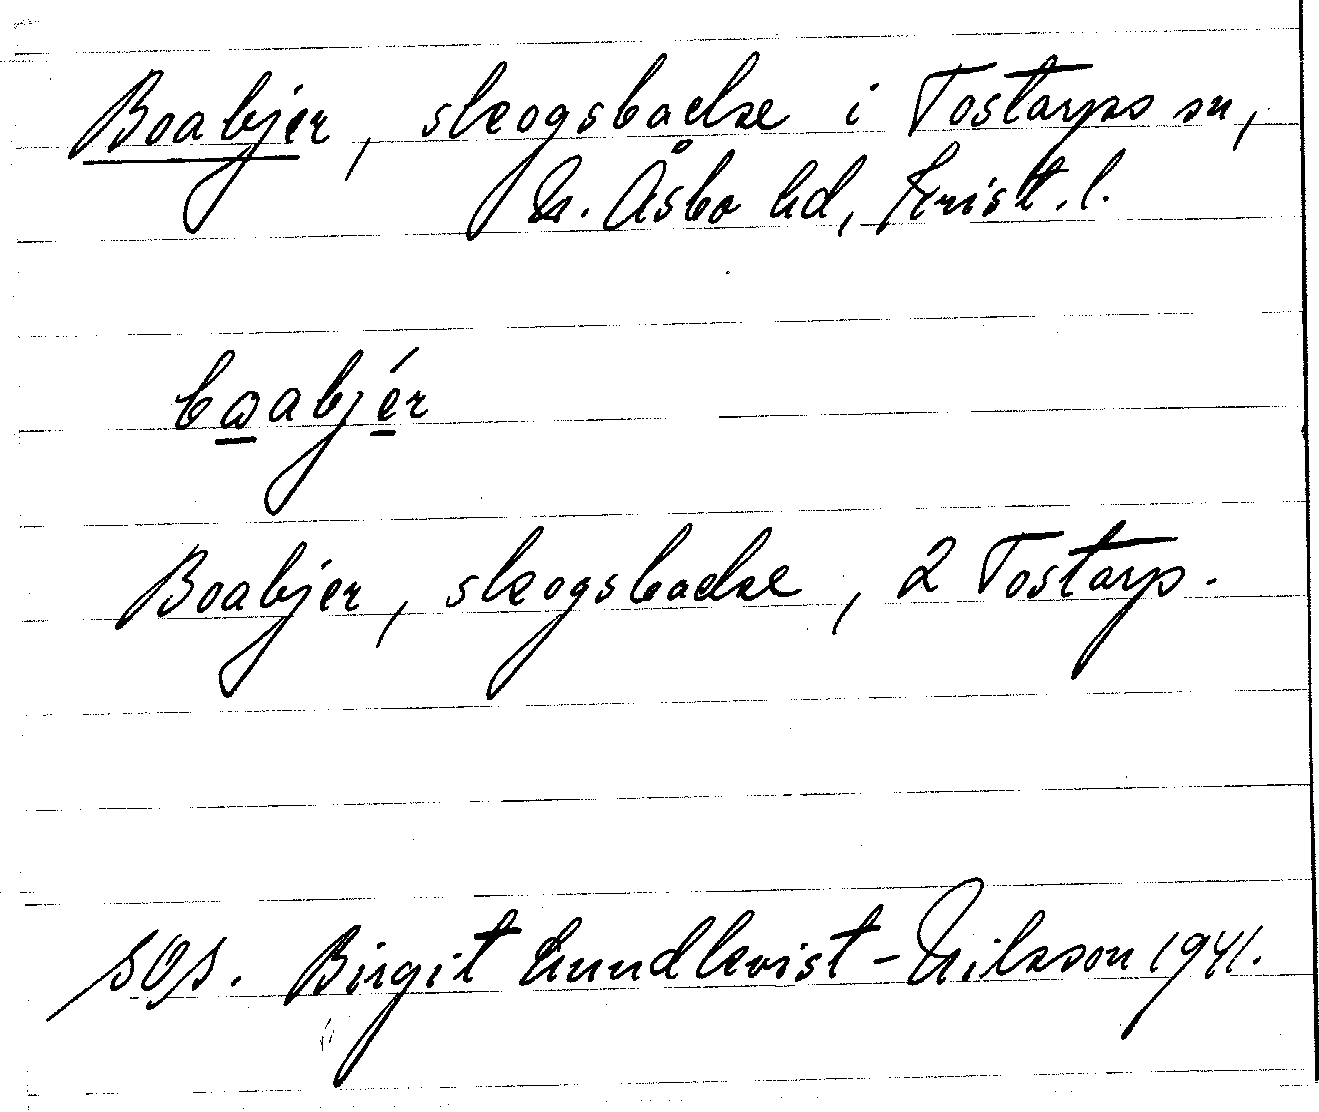 Boabjer, skogsbacke i Tostarps sn,
N. Åsbo hd, Krist. l.
bωabjér
Boabjer, skogsbacke, 2 Tostarp.
SOS. Birgit Lundkvist-Nilsson 1941.